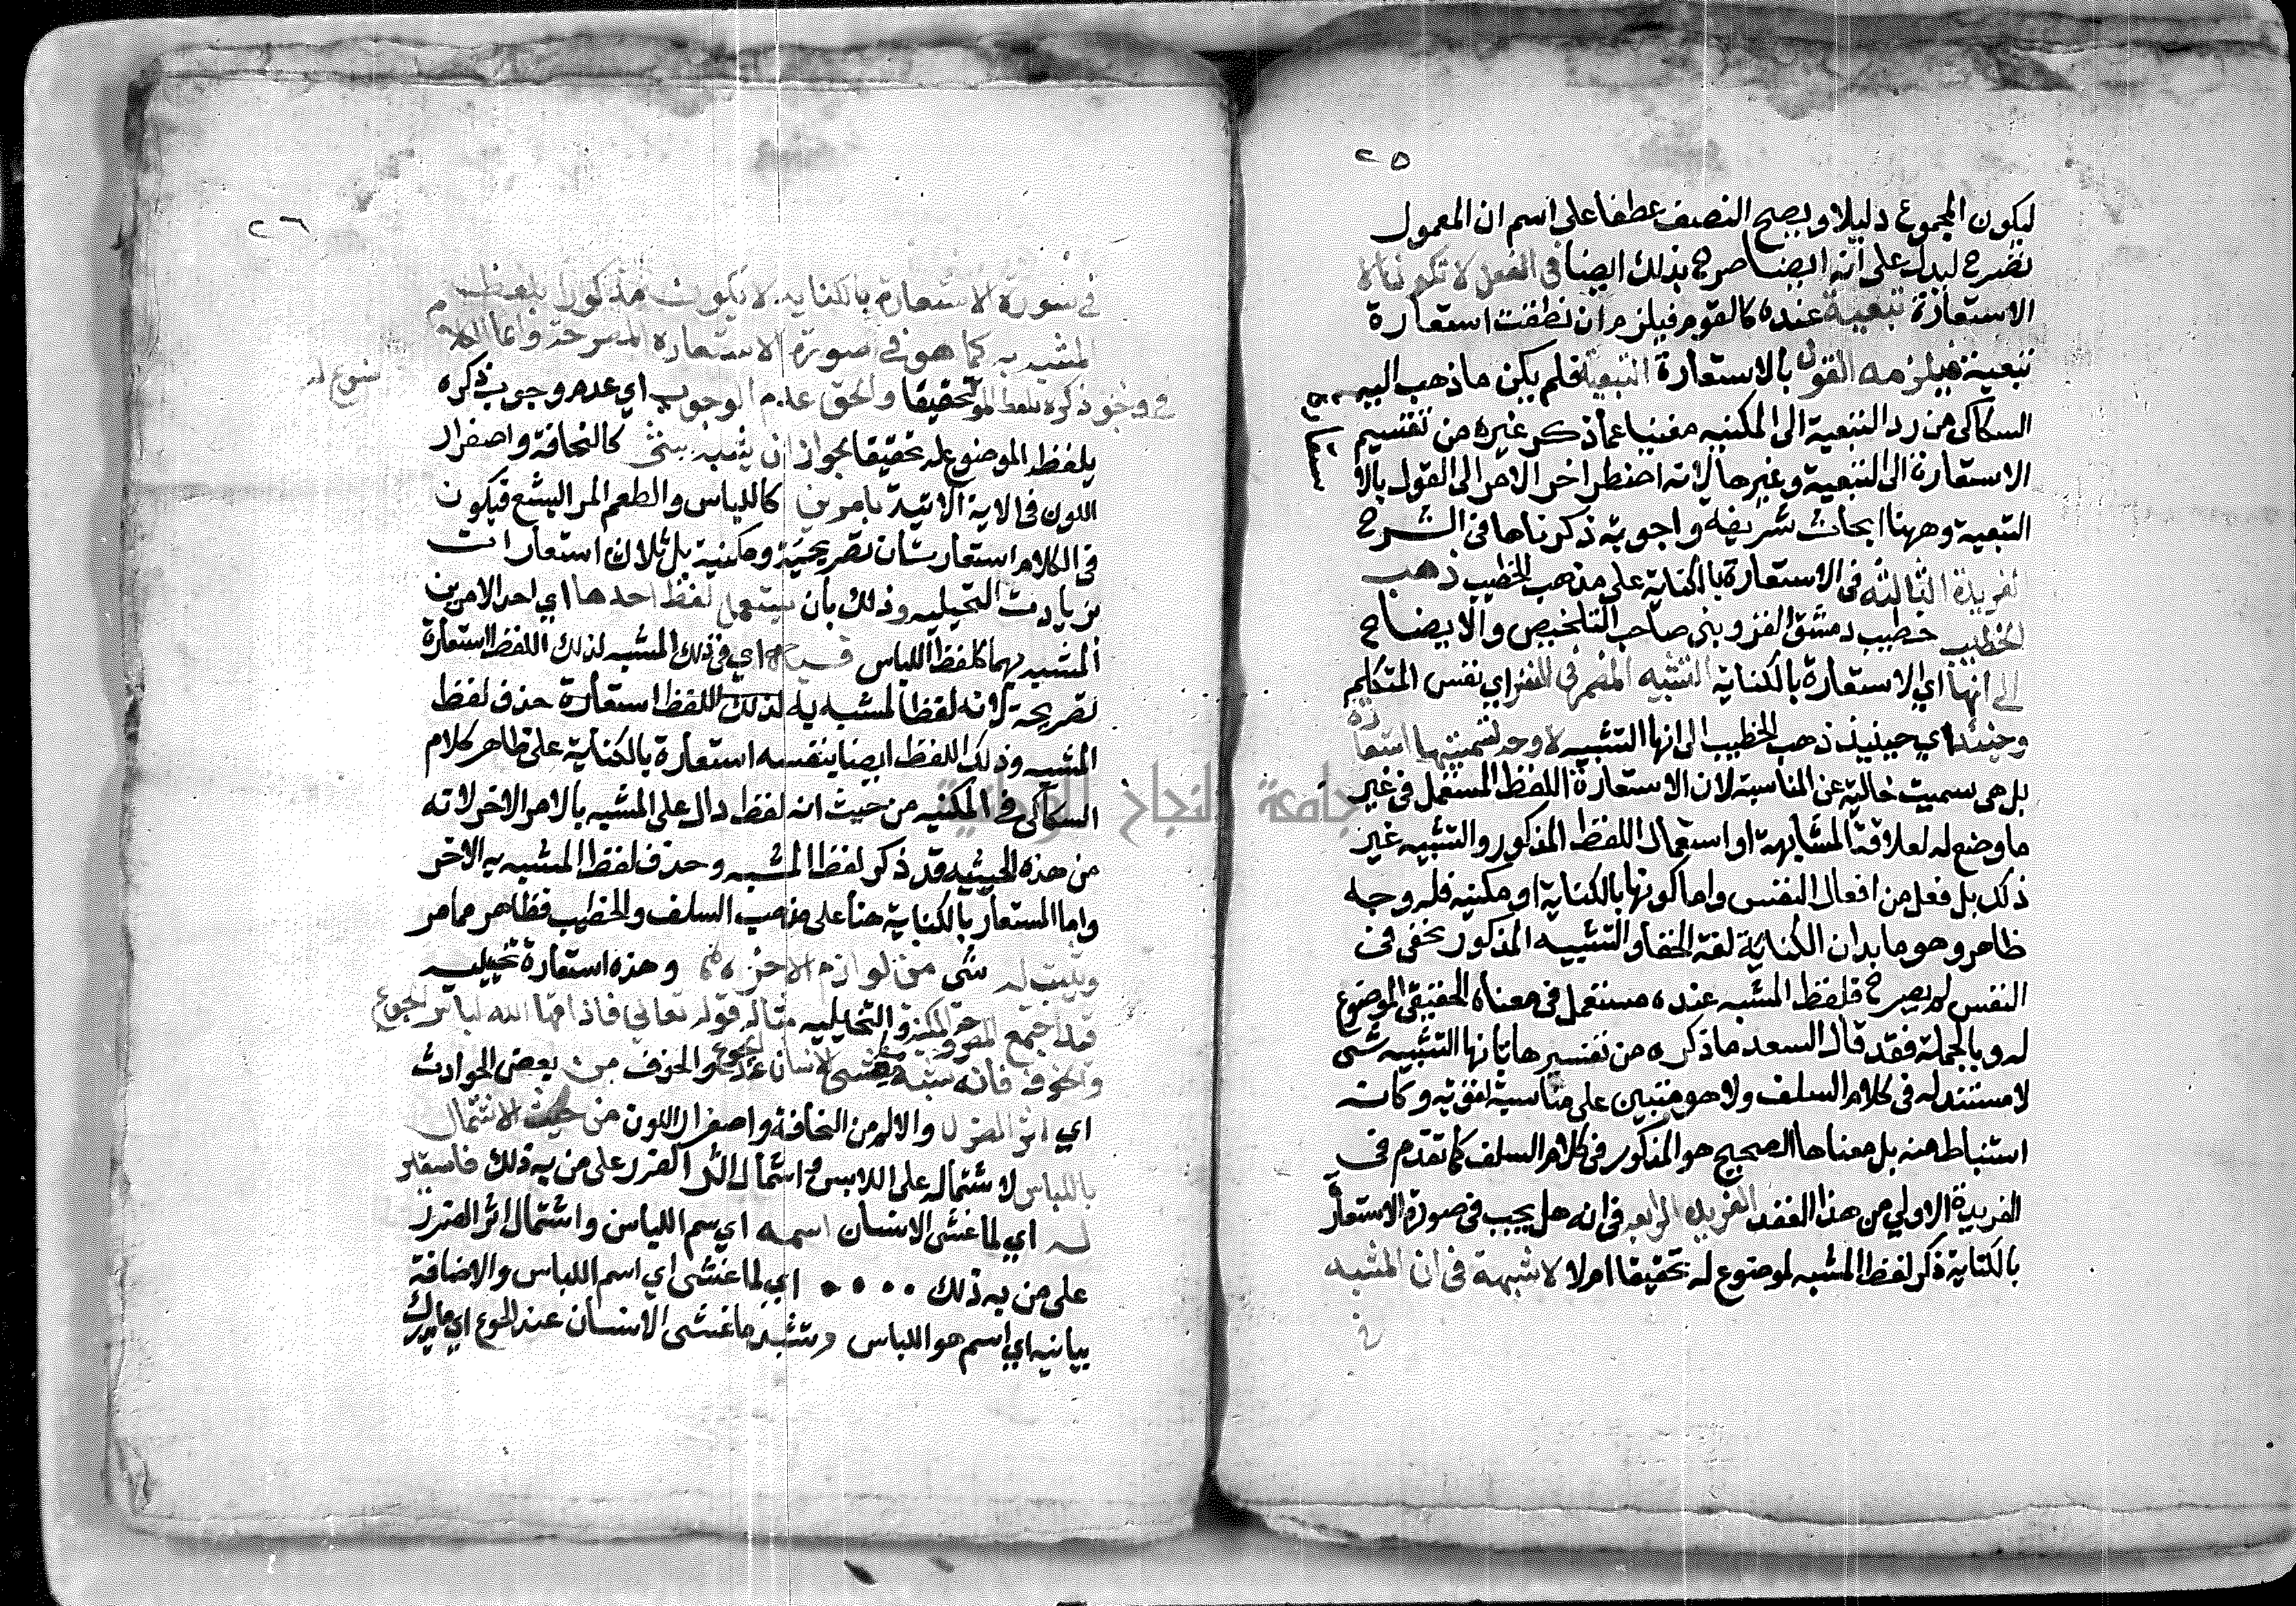 ٢٥
ليكون المجموع دليلا ويصح النصف عطفا على اسم ان المعمول
نصرح ليدل على انه ايضا صرح بذلك ايضا في الفعل لا تكون الا
الاستعارة تبعية عنده كالقوم فيلزم ان نطقت استعارة
تبعية فيلزمه القول بالاستعارة التبعية فلم يكن ما ذهب اليه
السكاكي من رد التبعية الى المكنيه مغنيا عما ذكر غيره من تقسيم
الاستعارة الى التبعية وغيرها لانه اضطر اخر الامر الى القول بالا
التبعية وههنا ابحاث شريفة واجوبة ذكرناها في الشرح
لفريدة الثالثة في الاستعارة بالكناية على مذهب الخطيب ذهب
الخطيب خطيب دمشق القزويني صاحب التلخيص والايضاح
الى انها اي الاستعارة بالكناية التشبيه المضمر في النفس اي نفس المتكلم
وحينئذ اي حينيذ ذهب الخطيب الى انها التشبيه لا وجه لتسميتها استعارة
بل هي سميت خالية عن المناسبة لان الاستعارة اللفظ المستعمل في غير
ما وضع له لعلاقة المشابهة او استعمال اللفظ المذكور والتشبيه غير
ذلك بل فعل من افعال النفس واما كونها بالكناية او مكنيه فله وجه
ظاهر وهو ما بدان الكناية لغة الخفا والتشبيه المذكور يخفى في
النفس لم يصرح فلفظ المشبه عنده مستعمل في معناه الحقيقي الموضوع
له وبالجملة فقد قال السعد ما ذكره من تفسيرها بانها التشبيه شي
لا مستند له في كلام السلف ولا هو مبتنى على مناسبة لغوية وكانه
استنباط منه بل معناها الصحيح هو المذكور في كلام السلف كما تقدم في
الفريدة الاولي من هذا العقد الفريده الرابعه في انه هل يجب في صورة الاستعار
بالكناية ذكر لفظ المشبه لموضوع له تحقيقا ام لا لا شبهة في ان المشبه
في
٢٦
في صورة الاستعارة بالكنايه لا يكون مذكورا بلفظ
المشبه به كما هو في صورة الاستعاره المصرحة وانما الكلام
في وجوب ذكره بلفظ الموضوع له تحقيقا والحق عدم الوجوب اي عدم وجوب ذكره
بلفظ الموضوع له تحقيقا لجواز ان يشبه شي كالنحافة واصفرار
اللون في الاية الاتية بامرين كاللباس والطعم المر البشع فيكون
في الكلام استعارتان تصريحية ومكنية بل ثلاث استعارات
بزيادت التخيليه وذلك بأن يستعمل لفظ احدها اي احد الامرين
المشبه بهما كلفظ اللباس فيه اي في ذلك المشبه لذلك اللفظ استعارة
تصريحة لانه لفظ المشبه به لذلك اللفظ استعارة حذف لفظ
المشبه وذلك اللفظ ايضا بنفسه استعارة بالكناية على ظاهر كلام
السكاكي في المكنيه من حيث انه لفظ دال على المشبه بالامر الاخر لانه
من هذه الحيثيه قد ذكر لفظ المشبه وحذف لفظ المشبه به الاخر
واما المستعار بالكناية هنا على مذهب السلف والخطيب فظاهر مما مر
ويثبت له شي من لوازم الاخر وهذه استعارة تخييليه
فقد اجتمع المصرحة والمكنية والتخيليه مثاله قوله تعالى فاذاقها الله لباس الجوع
والخوف فانه شبه ما غشى الانسان عند الجوع والخوف من بعض الحوادث
اي اثر الضرر والالم من النحافة واصفرار اللون من حيث الاشتمال
باللباس لاشتماله على اللابس واشتمال اثر الضرر على من به ذلك فاستعير
له اي لما غشى الانسان اسمه اي سم اللباس واشتمال اثر الضرر
على من به ذلك اي لما غشى اي اسم اللباس والاضافة
بيانيه اي اسم هو اللباس ويشبه ما غشى الانسان عند الجوع اي ما يدرك
جامعة النجاح الوطنية